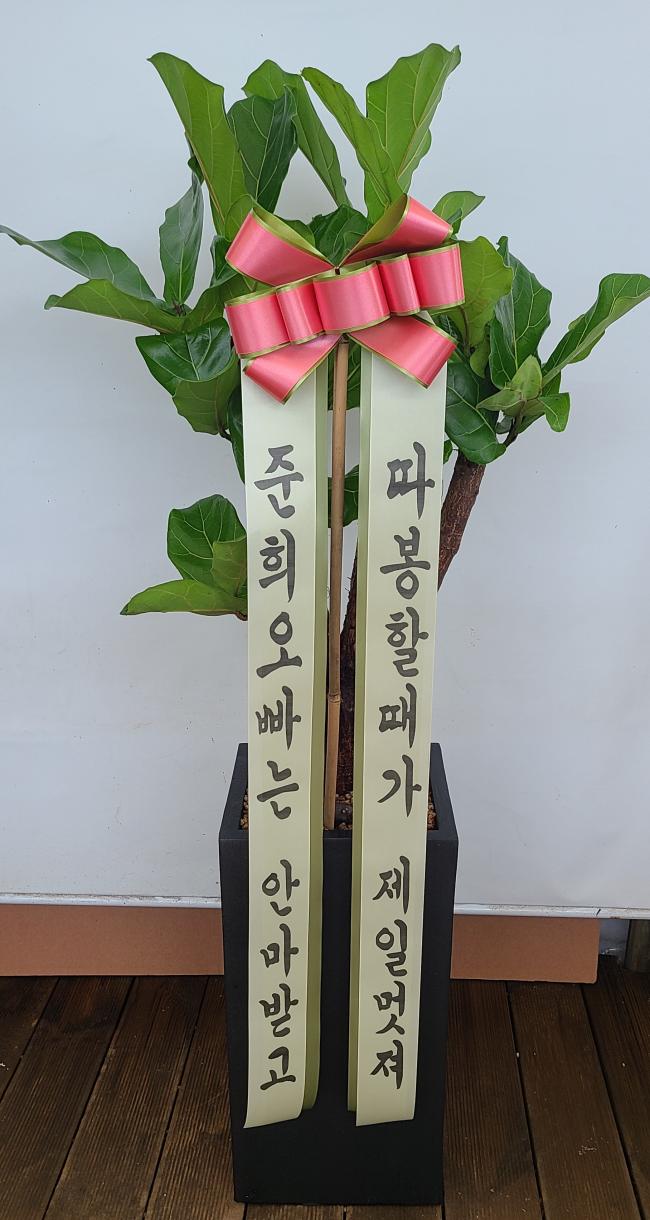 준희오빠는 안마받고
따봉할때가 제일멋져